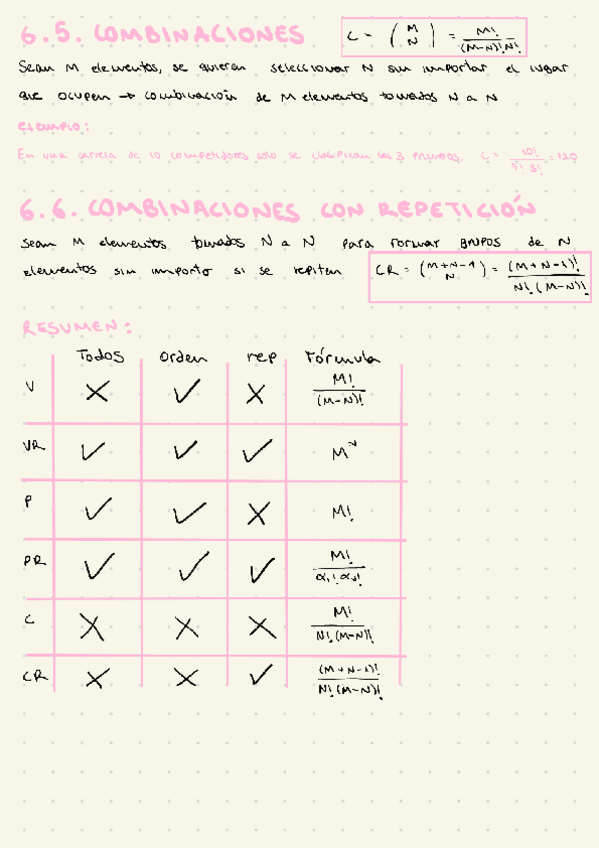 6.5. COMBINACIONES C = (M N) = M! / (M-N)! N!
Sean M elementos, se quieren seleccionar N sin importar el lugar
que ocupen → combinación de M elementos tomados N a N
EJEMPLO:
En una carrera de 10 competidores solo se clasifican los 3 primeros. C = 10! / 7! 3! = 120
6.6. COMBINACIONES CON REPETICIÓN
Sean M elementos tomados N a N para formar grupos de N
elementos sin importo si se repiten CR = (M+N-1 N) = (M+N-1)! / N! (M-N)!
RESUMEN:
Todos Orden rep Fórmula
V ✗ ✓ ✗ M! / (M-N)!
VR ✓ ✓ ✓ M^N
P ✓ ✓ ✗ M!
PR ✓ ✓ ✓ M!
C ✗ ✗ ✗ M! / N! (M-N)!
CR ✗ ✗ ✓ (M+N-1)! / N! (M-N)!